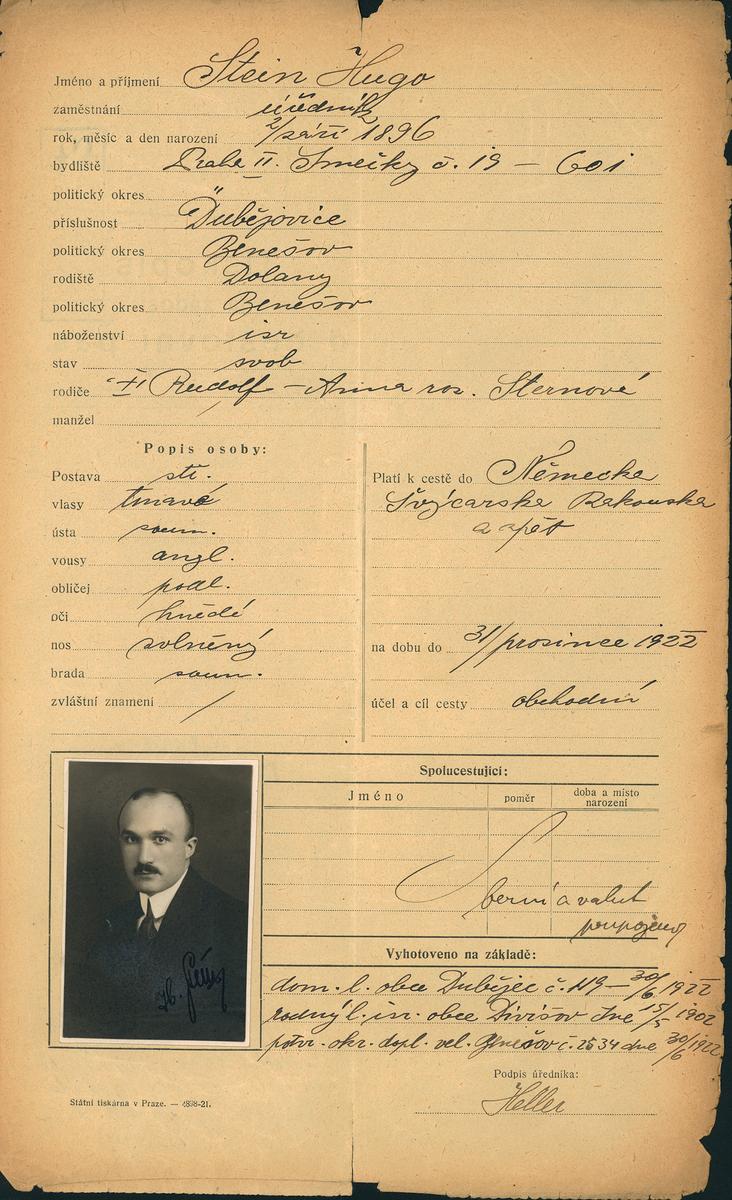 Jméno a příjmení Stein Hugo
zaměstnání úředník
rok, měsíc a den narození 2/září 1896
bydliště Praha II. Smečky č. 19 — 601
politický okres "
příslušnost Dubějovice
politický okres Benešov
rodiště Dolany
politický okres Benešov
náboženství isr
stav svob
rodiče Rudolf — Anna roz. Sternová
manžel /
Popis osoby:
Postava stř.
vlasy tmavé
ústa soum.
vousy angl.
obličej podl.
oči hnědé
nos
brada soum.
zvláštní znamení /
Platí k cestě do Německa
Švýcarska Rakouska
a zpět
na dobu do 31/prosince 1922
účel a cíl cesty obchodní
Spolucestující:
Jméno poměr doba a místo narození
berní a valut
Vyhotoveno na základě:
dom. l. obce Dubějov. č. 119 — 30/6 1922
rodný l. isr. obce Divišov dne 15/5 1902
potvr. okr. dopl. vel. Benešov č. 2534 dne 30/6 1922
Podpis úředníka:
Heller
Státní tiskárna v Praze. — 4898-21.